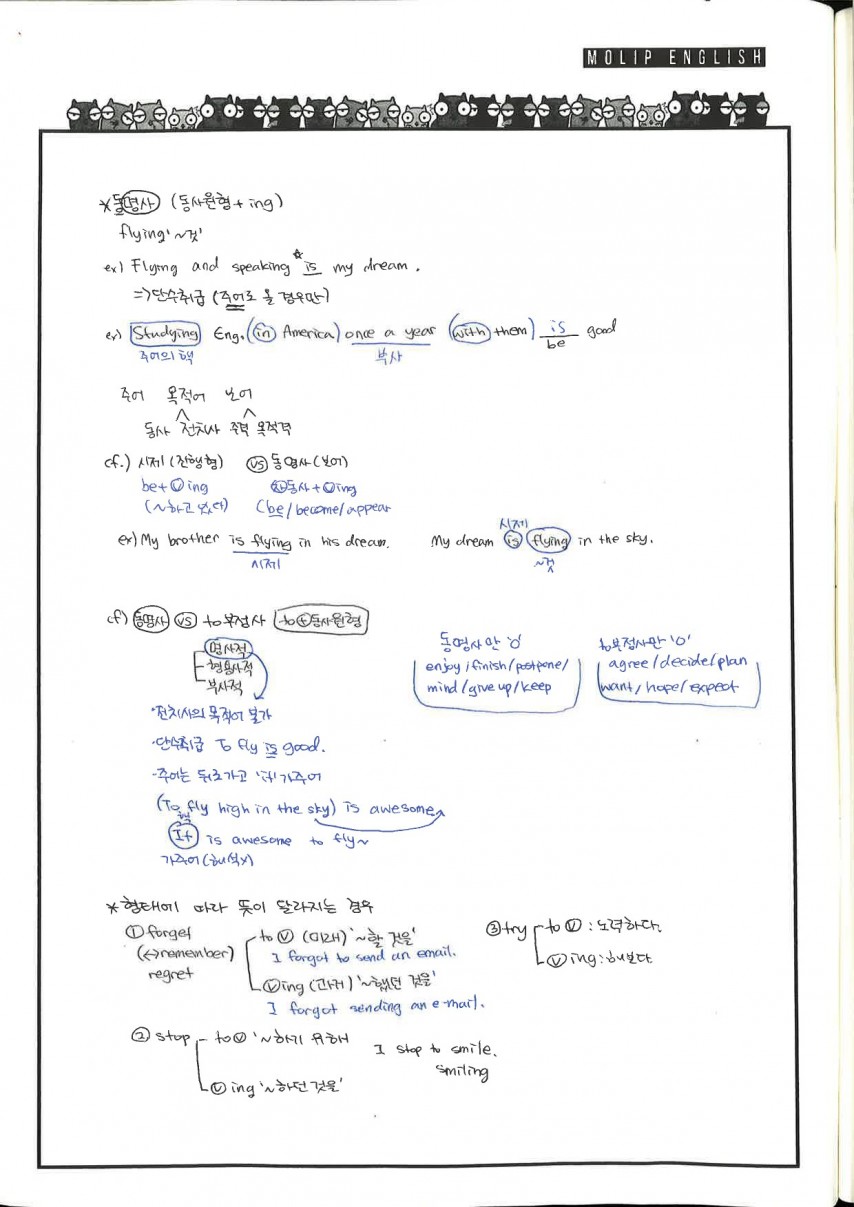 MOLIP ENGLISH
*동명사 (동사원형 + ing)
flying '~것'
ex) Flying and speaking is my dream.
⇒단수취급 (주어로 올 경우만)
ex) Studying Eng. (in America) once a year (with them) is good
주어의 핵 부사 be
주어 목적어 보어
동사 전치사 주격 목적격
cf.) 시제 (진행형) vs 동명사 (보어)
be+ⓥing ②동사+ⓥing
(~하고 있다) (be/become/appear
ex) My brother is flying in his dream. My dream is flying in the sky.
시제 시제 ~것
cf) 동명사 vs to부정사 to+동사원형
명사적
형용사적
부사적
동명사만 'O'
enjoy/finish/postpone/
mind/give up/keep
to부정사만 'O'
agree/decide/plan
want/hope/expect
·전치사의 목적어 불가
·단수취급 To fly is good.
-주어는 뒤로가고 'it' 가주어
(To fly high in the sky) is awesome
핵
It is awesome to fly~
가주어(해석x)
*형태에 따라 뜻이 달라지는 경우
① forget
(↔remember)
regret
to ⓥ (미래) '~할 것을'
I forgot to send an email.
ⓥing (과거) '~했던 것을'
I forgot sending an e-mail.
③ try to ⓥ : 노력하다.
ⓥing : 해보다
② stop - to ⓥ '~하기 위해
ⓥing '~하던 것을'
I stop to smile.
smiling